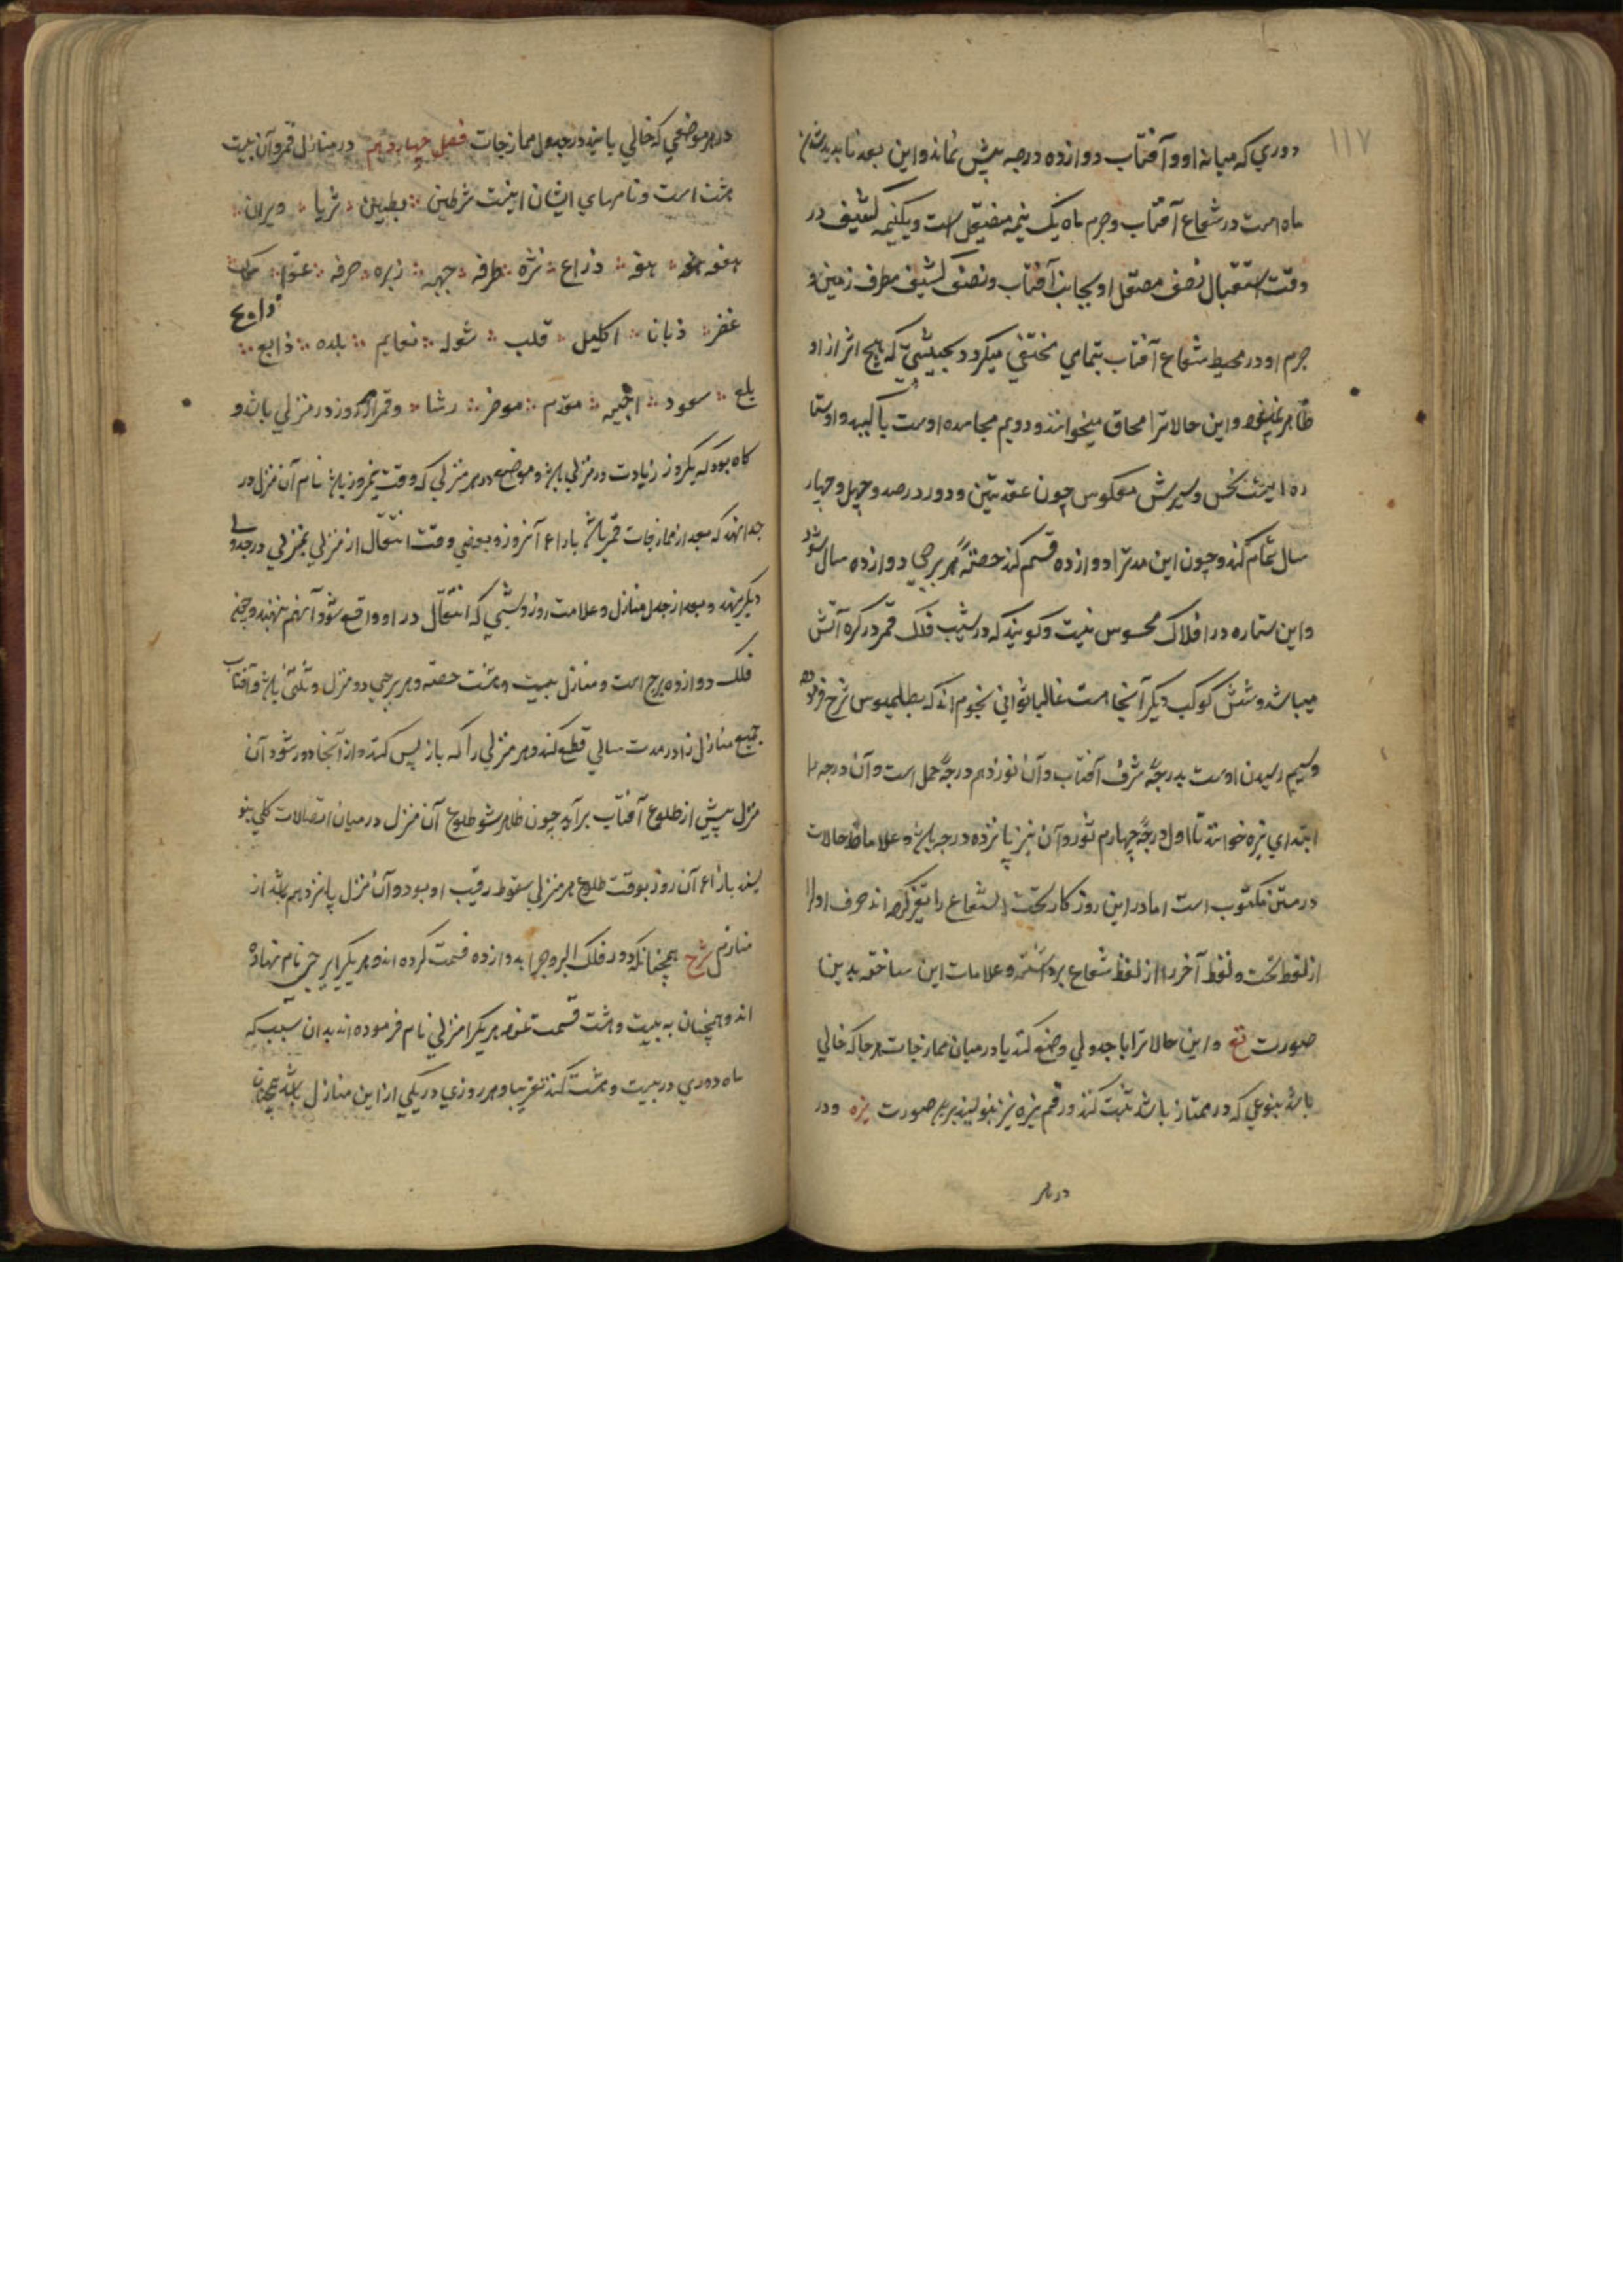 ۱۱۷
دوري که میانه او و آفتاب دوازده درجه بیش نماند و این بعد ناپدید شدن
ماه است در شعاع آفتاب و جرم ماه یک نیمه صیقل است و یکنیمه کثیف در
وقت استقبال نصف مصیقل او بجانب آفتاب و نصف کثیف بطرف زمین و
جرم او در محیط شعاع آفتاب بتمامي مختفي میکردد بحیثیتی که هیچ اثر از او
ظاهر نمیشود و این حالا ترا محاق میخوانند و دویم مجاسده اوست با کید و او ستا
ره ایست نحس و سیرش معکوس چون عقدتین و دور در صد و چهل و چهار
سال تمام کند و چون این مدترا دوازده قسم کند حصهٔ هر برجي دوازده سال شود
و این ستاره در افلاک محسوس نیست و کویند که در شیب فلک قمر در کره آتش
میباشد و شش کوکب دیکر آنجا است غالبا ثواني نجوم اند که بطلمیوس شرح فرموده
و سیم رسیدن اوست بدرجهٔ شرف آفتاب و آن نوزدهم درجهٔ حمل است و آن درجه را
ابتداي نیره خوانند تا اول درجهٔ چهارم ثور و آن نیز پانزده درجه باشد و علاماة حالات
در متن مکتوب است اما در این روز کار تحت الشعاع را تغیر کرده اند حرف اول را
از لفظ تحت و لفظ آخر را از لفظ شعاع برداشته و علامات این ساخته بدین
صورت تع و این حالا ترا با جدولي وضع کند یا در میان ممازجات هر جا که خالي
باشد بنوعي که در ممتاز باشد ثبت کند و رقم نیره نیز بنویسند برین صورت نیره و در
در هر
در هر موضعي که خالي یابند در جدول ممازجات فصل چهاردهم در منازل قمر و آن بیست
هشت است و نامهاي ایشان اینست شرطین بطین ثریا دبران
هقعه هنعه ذراع نثره طرفه جبهه زبره صرفه عوّا سماک
غفر زبانا اکلیل قلب شوله نعایم بلده ذابح
بلع سعود اخبیه مقدم موخر رشا و قمر هر روز در منزلي باشد و
کاه بود که یکروز زیادت در منزلي باشد و موضع در هر منزلي که وقت نیمروز باشد نام آن منزل در
جدا نهند که بعد از ممازجات قمر باشد بازاء آنروز و بعضي وقت انتقال از منزلي بمنزلي در جدولي
دیکر نهند و بعد از جدول منازل و علامت روز و شبي که انتقال در او واقع شود آنهم نهند و جمیع
فلک دوازده برج است و منازل بیست و هشت حصه و هر برجي دو منزل و ثلثي باشد و آفتاب
جمیع منازل را در مدت سالي قطع کند و هر منزلي را که باز پس کند و از آنجا دور شود آن
منزل پیش از طلوع آفتاب برآید چون ظاهر شود طلوع آن منزل در میان اتصالات کلي بنو
یسند بازاء آن روز بوقت طلوع هر منزلي سقوط رقیب او بود و آن منزل پانزدهم باشد از
منازل شرح همچنانکه دور فلک البروجرا بدوازده قسمت کرده اند و هر یکرا برجي نام نهاده
اند و همچنان به بیست و هشت قسمت نموده هر یکرا منزلي نام فرموده اند بدان سبب که
ماه دوري در بیست و هشت کند تقریبا و هر روزي در یکي از این منازل باشد